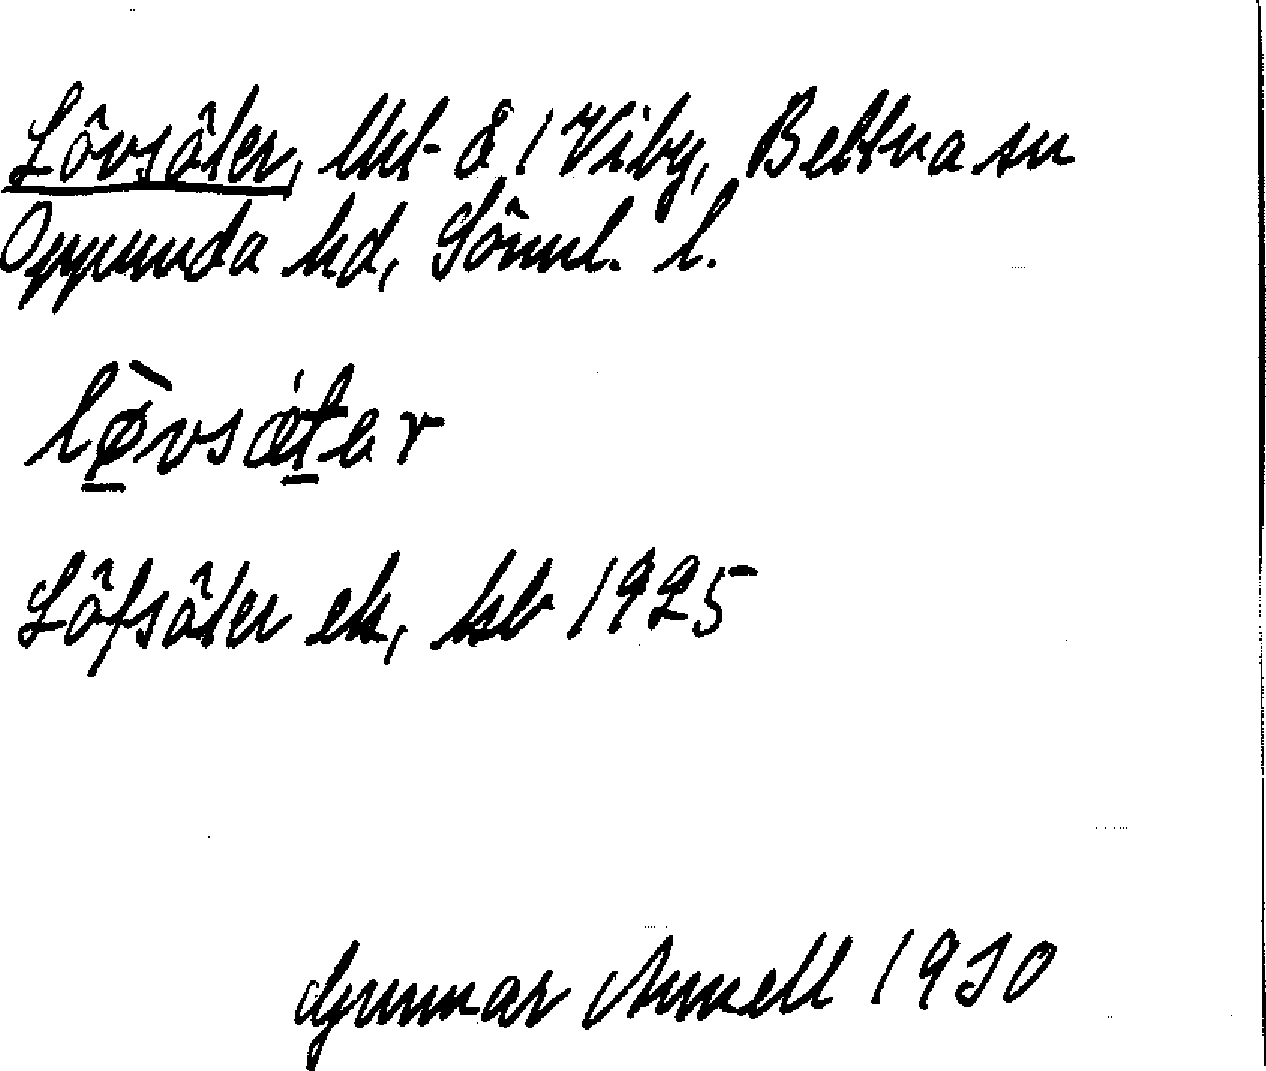 Lövsäter, lht 8/1 Viby, Bettna sn
Oppunda hd, Söml. l.
lø̀vsætar
Löfsäter ek, kb 1925
Gunnar Arnell 1930